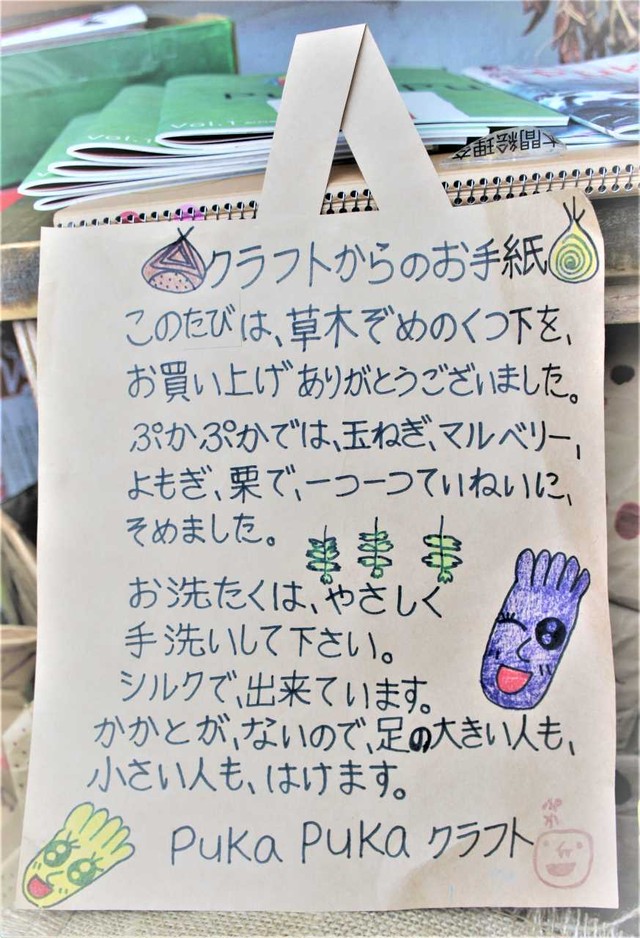 vol.1
vol.1
クラフトからのお手紙
このたびは、草木ぞめのくつ下を、
お買い上げありがとうございました。
ぷかぷかでは、玉ねぎ、マルベリー、
よもぎ、栗で、一つ一つていねいに、
そめました。
お洗たくは、やさしく
手洗いして下さい。
シルクで、出来ています。
かかとが、ないので、足の大きい人も、
小さい人も、はけます。
PUKa PUKa クラフト
ぷか